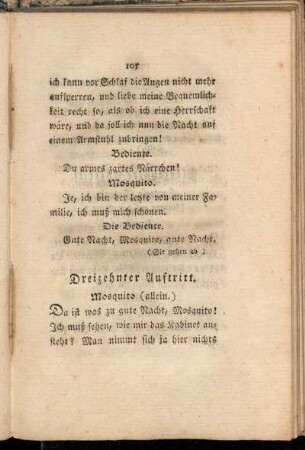 105
ich kann vor Schlaf die Augen nicht mehr
aufsperren, und liebe meine Bequemlich-
keit recht so, als ob ich eine Herrschaft
wäre, und da soll ich nun die Nacht auf
einem Armstuhl zubringen!
Bediente.
Du armes zartes Närrchen!
Mosquito.
Je, ich bin der letzte von meiner Fa-
milie, ich muß mich schonen.
Die Bediente.
Gute Nacht, Mosquito, gute Nacht.
(Sie gehen ab)
Dreizehnter Auftritt.
Mosquito (allein.)
Da ist was zu gute Nacht, Mosquito!
Ich muß sehen, wie mir das Kabinet an-
steht? Man nimmt sich ja hier nichts